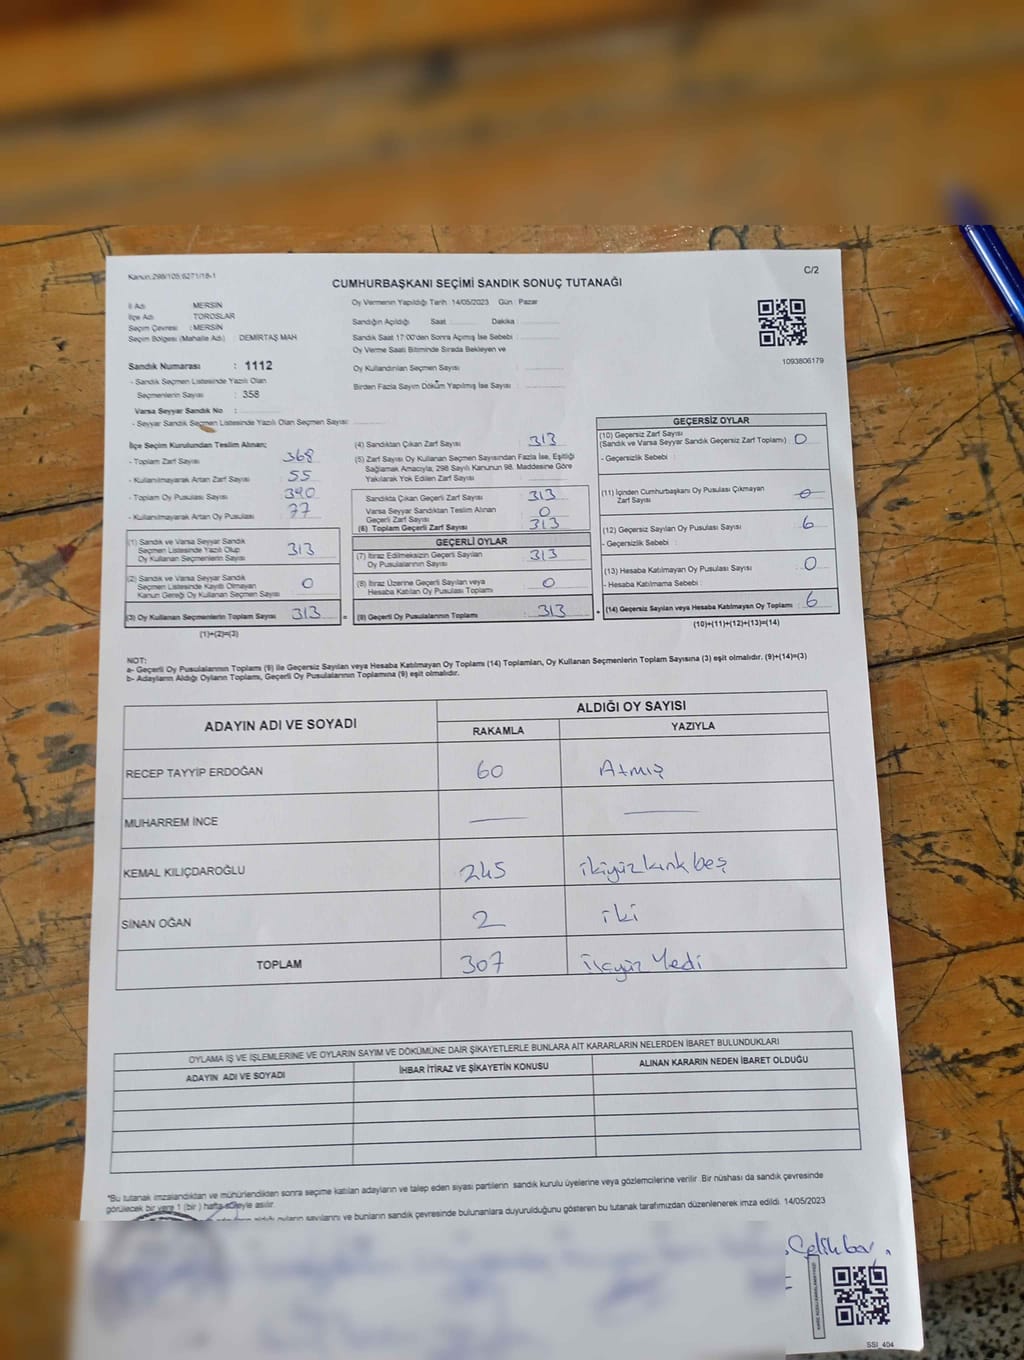 Kanun:298/105:6271/18-1
C/2
CUMHURBAŞKANI SEÇİMİ SANDIK SONUÇ TUTANAĞI
İl Adı MERSİN
İlçe Adı TOROSLAR
Seçim Çevresi : MERSİN
Seçim Bölgesi (Mahalle Adı) : DEMİRTAŞ MAH
Sandık Numarası : 1112
- Sandık Seçmen Listesinde Yazılı Olan
Seçmenlerin Sayısı : 358
Varsa Seyyar Sandık No :
- Seyyar Sandık Seçmen Listesinde Yazılı Olan Seçmen Sayısı
Oy Vermenin Yapıldığı Tarih :14/05/2023 Gün : Pazar
Sandığın Açıldığı Saat Dakika :
Sandık Saat 17:00'den Sonra Açımış İse Sebebi :
Oy Verme Saati Bitiminde Sırada Bekleyen ve
Oy Kullandırılan Seçmen Sayısı :
Birden Fazla Sayım Döküm Yapılmış İse Sayısı :
1093806179
İlçe Seçim Kurulundan Teslim Alınan;
- Toplam Zarf Sayısı : 368
- Kullanılmayarak Artan Zarf Sayısı : 55
- Toplam Oy Pusulası Sayısı : 390
- Kullanılmayarak Artan Oy Pusulası : 77
(1) Sandık ve Varsa Seyyar Sandık
Seçmen Listesinde Yazılı Olup
Oy Kullanan Seçmenlerin Sayısı 313
(2) Sandık ve Varsa Seyyar Sandık
Seçmen Listesinde Kayıtlı Olmayan
Kanun Gereği Oy Kullanan Seçmen Sayısı 0
(3) Oy Kullanan Seçmenlerin Toplam Sayısı 313 =
(1)+(2)=(3)
(4) Sandıktan Çıkan Zarf Sayısı 313
(5) Zarf Sayısı Oy Kullanan Seçmen Sayısından Fazla İse, Eşitliği
Sağlamak Amacıyla, 298 Sayılı Kanunun 98. Maddesine Göre
Yakılarak Yok Edilen Zarf Sayısı
Sandıkta Çıkan Geçerli Zarf Sayısı 313
Varsa Seyyar Sandıktan Teslim Alınan
Geçerli Zarf Sayısı 0
(6) Toplam Geçerli Zarf Sayısı 313
GEÇERLİ OYLAR
(7) İtiraz Edilmeksizin Geçerli Sayılan
Oy Pusulalarının Sayısı 313
(8) İtiraz Üzerine Geçerli Sayılan veya
Hesaba Katılan Oy Pusulası Toplamı 0
(9) Geçerli Oy Pusulalarının Toplamı 313 +
GEÇERSİZ OYLAR
(10) Geçersiz Zarf Sayısı
(Sandık ve Varsa Seyyar Sandık Geçersiz Zarf Toplamı) 0
- Geçersizlik Sebebi :
(11) İçinden Cumhurbaşkanı Oy Pusulası Çıkmayan
Zarf Sayısı 0
(12) Geçersiz Sayılan Oy Pusulası Sayısı 6
- Geçersizlik Sebebi :
(13) Hesaba Katılmayan Oy Pusulası Sayısı 0
- Hesaba Katılmama Sebebi :
(14) Geçersiz Sayılan veya Hesaba Katılmayan Oy Toplamı 6
(10)+(11)+(12)+(13)=(14)
NOT:
a- Geçerli Oy Pusulalarının Toplamı (9) ile Geçersiz Sayılan veya Hesaba Katılmayan Oy Toplamı (14) Toplamları, Oy Kullanan Seçmenlerin Toplam Sayısına (3) eşit olmalıdır. (9)+(14)=(3)
b- Adayların Aldığı Oyların Toplamı, Geçerli Oy Pusulalarının Toplamına (9) eşit olmalıdır.
ADAYIN ADI VE SOYADI
ALDIĞI OY SAYISI
RAKAMLA YAZIYLA
RECEP TAYYİP ERDOĞAN 60 Atmış
MUHARREM İNCE
KEMAL KILIÇDAROĞLU 245 ikiyüzkırkbeş
SİNAN OĞAN 2 iki
TOPLAM 307 üçyüz Yedi
OYLAMA İŞ VE İŞLEMLERİNE VE OYLARIN SAYIM VE DÖKÜMÜNE DAİR ŞİKAYETLERLE BUNLARA AİT KARARLARIN NELERDEN İBARET BULUNDUKLARI
ADAYIN ADI VE SOYADI İHBAR İTİRAZ VE ŞİKAYETİN KONUSU ALINAN KARARIN NEDEN İBARET OLDUĞU
*Bu tutanak imzalandıktan ve mühürlendikten sonra seçime katılan adayların ve talep eden siyasi partilerin sandık kurulu üyelerine veya gözlemcilerine verilir. Bir nüshası da sandık çevresinde
görülecek bir yere 1 (bir ) hafta süreyle asılır.
aldığı oyların sayılarını ve bunların sandık çevresinde bulunanlara duyurulduğunu gösteren bu tutanak tarafımızdan düzenlenerek imza edildi. 14/05/2023
SSI_404